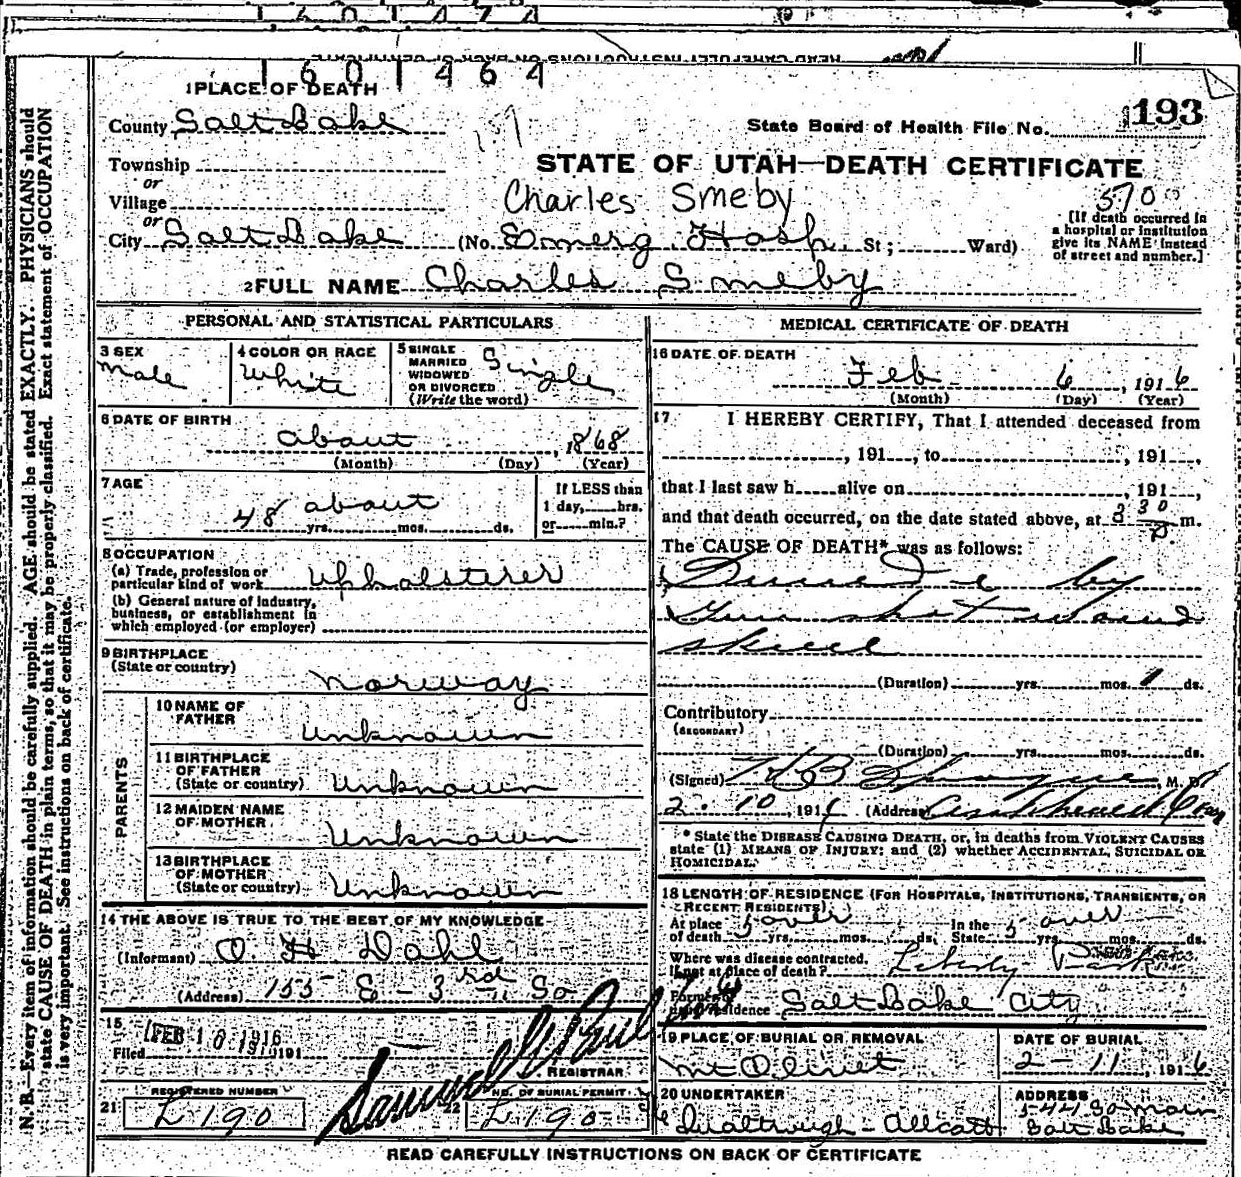 1601474
READ CAREFULLY INSTRUCTIONS ON BACK OF CERTIFICATE
1601464
1 PLACE OF DEATH
County Salt Lake
State Board of Health File No. 193
Township
or
Village
or
City Salt Lake (No. Emerg. Hosp. St; Ward)
STATE OF UTAH—DEATH CERTIFICATE
Charles Smeby
570
[If death occurred in
a hospital or institution
give its NAME instead
of street and number.]
2 FULL NAME Charles Smeby
PERSONAL AND STATISTICAL PARTICULARS
3 SEX
Male
4 COLOR OR RACE
White
5 SINGLE
MARRIED
WIDOWED
OR DIVORCED
(Write the word)
Single
6 DATE OF BIRTH
about , 1868
(Month) (Day) (Year)
7 AGE
48 about
yrs. mos. ds.
If LESS than
1 day, hrs.
or min.?
8 OCCUPATION
(a) Trade, profession or
particular kind of work Upholsterer
(b) General nature of industry,
business, or establishment in
which employed (or employer)
9 BIRTHPLACE
(State or country)
Norway
PARENTS
10 NAME OF
FATHER
Unknown
11 BIRTHPLACE
OF FATHER
(State or country) Unknown
12 MAIDEN NAME
OF MOTHER
Unknown
13 BIRTHPLACE
OF MOTHER
(State or country) Unknown
14 THE ABOVE IS TRUE TO THE BEST OF MY KNOWLEDGE
(Informant) O. H Dahl
(Address) 155 E - 3rd So
15
Filed FEB 10 1916 191
REGISTRAR
REGISTERED NUMBER
21 L 190
NO. OF BURIAL PERMIT
22 L 190
MEDICAL CERTIFICATE OF DEATH
16 DATE OF DEATH
Feb 6 , 1916
(Month) (Day) (Year)
17 I HEREBY CERTIFY, That I attended deceased from
, 191 , to , 191 ,
that I last saw h alive on , 191 ,
and that death occurred, on the date stated above, at 3 30 P m.
The CAUSE OF DEATH* was as follows:
by
Gun shot wound
skull
(Duration) yrs. mos. 1 ds.
Contributory
(SECONDARY)
(Duration) yrs. mos. ds.
(Signed) Sprague M. D.
2-10, 191 (Address)
* State the DISEASE CAUSING DEATH, or, in deaths from VIOLENT CAUSES
state (1) MEANS OF INJURY; and (2) whether ACCIDENTAL, SUICIDAL OR
HOMICIDAL.
18 LENGTH OF RESIDENCE (FOR HOSPITALS, INSTITUTIONS, TRANSIENTS, OR
RECENT RESIDENTS)
At place
of death 5 over yrs. mos. ds.
In the
State 5 over yrs. mos. ds.
Where was disease contracted,
If not at place of death? Liberty Park
Former or
usual residence Salt Lake City
19 PLACE OF BURIAL OR REMOVAL
Mt Olivet
DATE OF BURIAL
2-11, 1916
20 UNDERTAKER
ADDRESS
544 So Main
Salt Lake
READ CAREFULLY INSTRUCTIONS ON BACK OF CERTIFICATE
N. B.—Every item of information should be carefully supplied. AGE should be stated EXACTLY. PHYSICIANS should
state CAUSE OF DEATH in plain terms, so that it may be properly classified. Exact statement of OCCUPATION
is very important. See instructions on back of certificate.